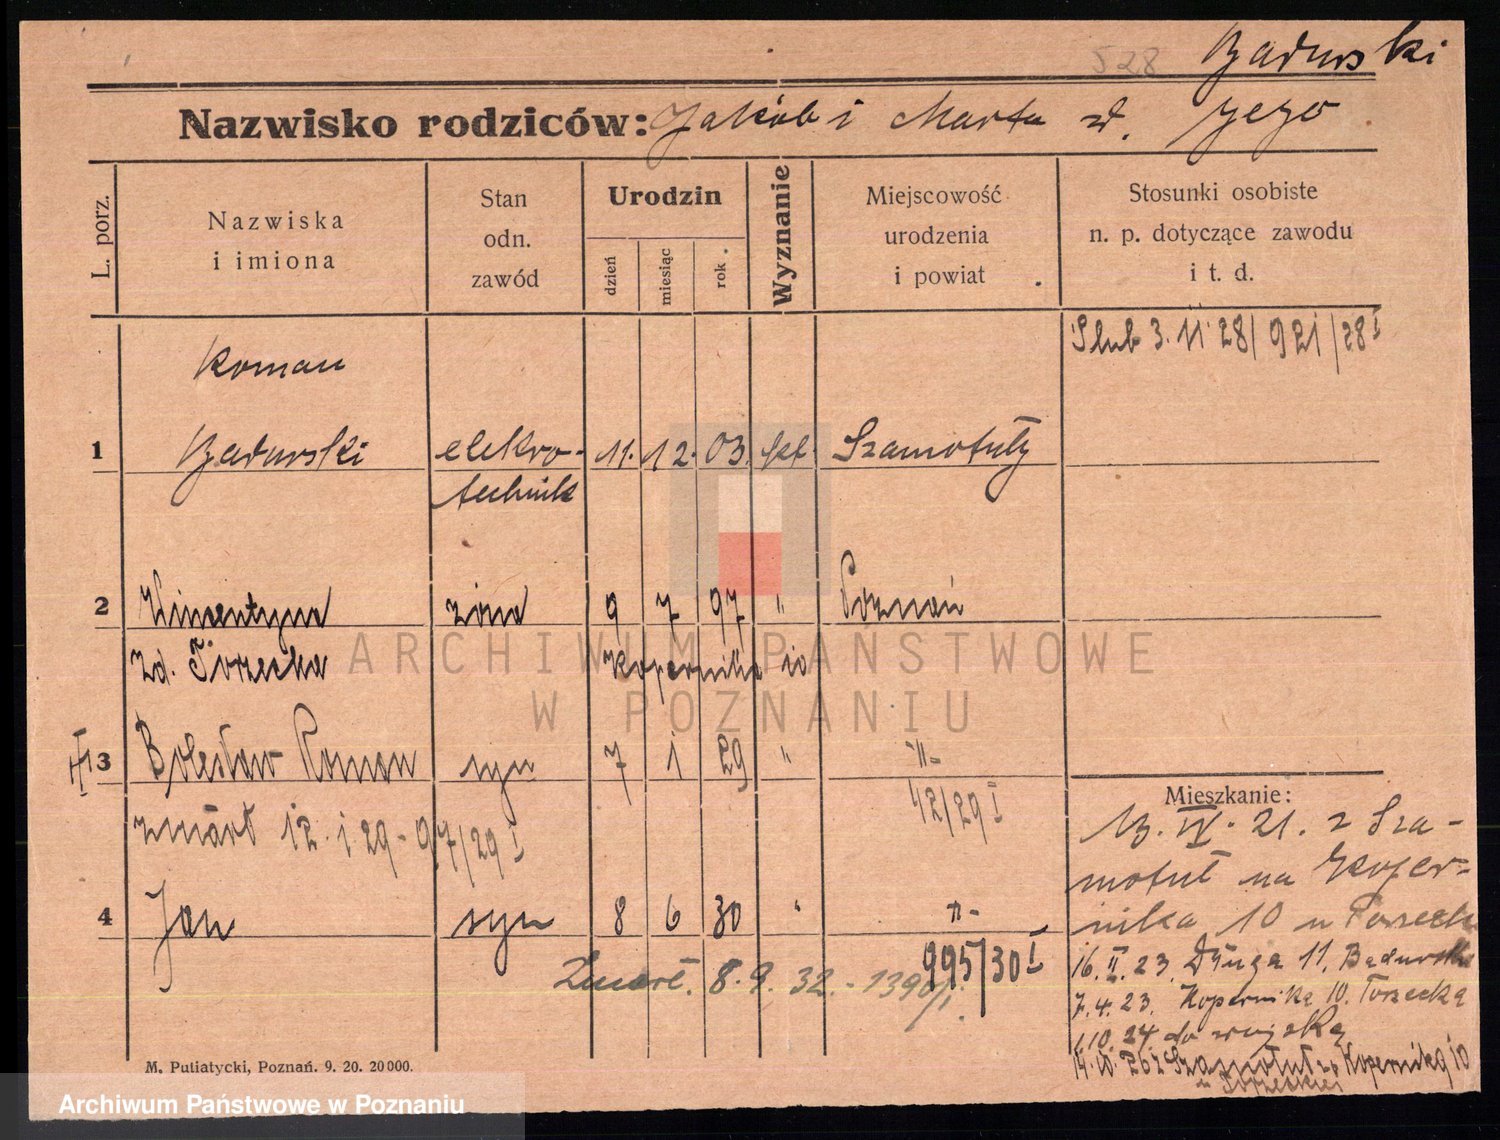 528 Bądurski
Nazwisko rodziców: Jakób i Marta z d. Jezo
L. porz.
Nazwiska
i imiona
Stan
odn.
zawód
Urodzin
dzień
miesiąc
rok
Wyznanie
Miejscowość
urodzenia
i powiat
Stosunki osobiste
n. p. dotyczące zawodu
i t. d.
Slub 3. 11 28/ 921/28 I
Roman
1 Bądurski elektro- 11. 12. 03. kat. Szamotuły
technik
2 żona 9 7 97 " Poznań
zd. Torzecka Kopernika 10
3 Bolesław Roman syn 7 1 29 " -"-
42/29 I
zmarł 12. 1 29 - 97/29 I
4 Jan syn 8 6 30 " -"-
995/30 I
Zmarł. 8. 9. 32. - 1390/I.
Mieszkanie:
13. IV. 21. z Sza-
motuł na Koper-
nika 10 u
16. II. 23. Długa 11. Bądurska
7. 4. 23. Kopernika 10. Torzecka
1.10. 24 do wojska
14. 10. 26 z Szamotuł Kopernika 10
u Torzeckiej
M. Putiatycki, Poznań. 9. 20. 20000.
ARCHIWUM PAŃSTWOWE
W POZNANIU
Archiwum Państwowe w Poznaniu